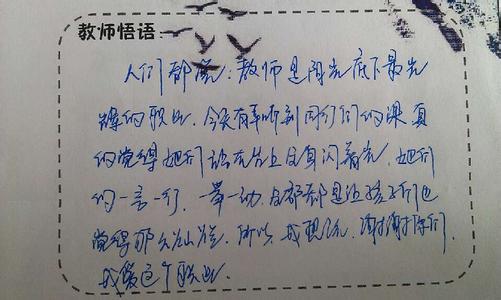 教师悟语：
人们都说：教师是阳光底下最光
辉的职业。今天有幸听到同行们的课真
的觉得她们站在台上自身闪着光，她们
的一言一行，一举一动，都是让孩子们
觉得那么，所以，我想说，谢谢你们，
我爱这个职业。